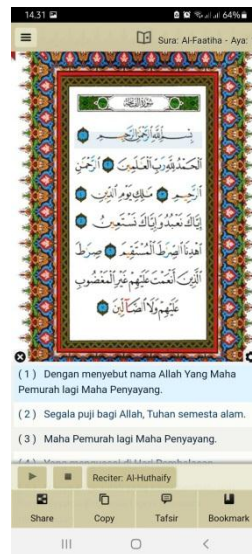 14.31
64%
Sura: Al-Faatiha - Aya:
سورة الفاتحة
بِسْمِ ٱللَّهِ ٱلرَّحْمَٰنِ ٱلرَّحِيمِ ١
ٱلْحَمْدُ لِلَّهِ رَبِّ ٱلْعَٰلَمِينَ ٢ ٱلرَّحْمَٰنِ
ٱلرَّحِيمِ ٣ مَٰلِكِ يَوْمِ ٱلدِّينِ ٤
إِيَّاكَ نَعْبُدُ وَإِيَّاكَ نَسْتَعِينُ ٥
ٱهْدِنَا ٱلصِّرَٰطَ ٱلْمُسْتَقِيمَ ٦ صِرَٰطَ
ٱلَّذِينَ أَنْعَمْتَ عَلَيْهِمْ غَيْرِ ٱلْمَغْضُوبِ
عَلَيْهِمْ وَلَا ٱلضَّآلِّينَ ٧
(1) Dengan menyebut nama Allah Yang Maha
Pemurah lagi Maha Penyayang.
(2) Segala puji bagi Allah, Tuhan semesta alam.
(3) Maha Pemurah lagi Maha Penyayang.
Reciter: Al-Huthaify
Share Copy Tafsir Bookmark